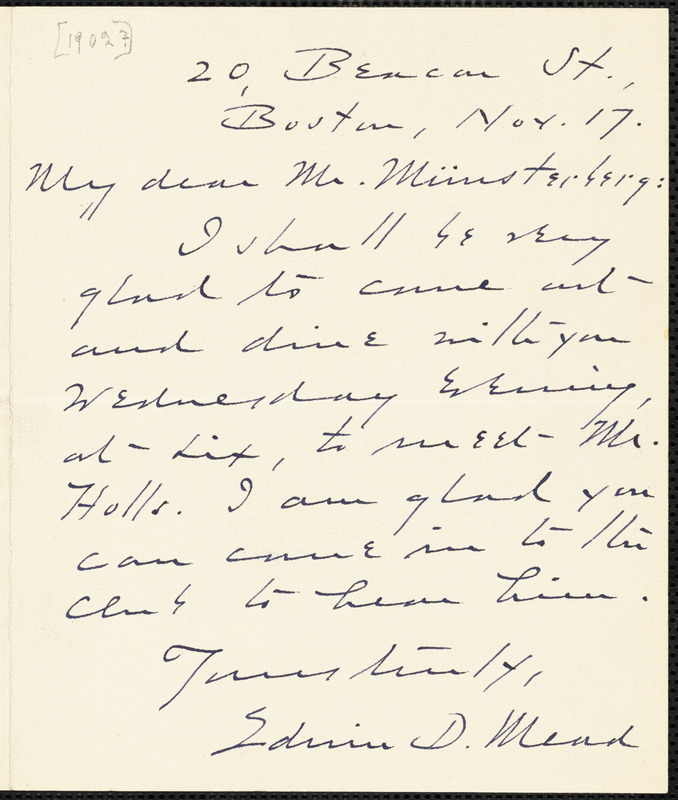 [1902?]
20 Beacon St.,
Boston, Nov. 17.
My dear Mr. Münsterberg:
I shall be very
glad to come out
and dine with you
Wednesday evening,
at six, to meet Mr.
Holls. I am glad you
can come in to the
club to hear him.
Yours truly,
Edwin D. Mead